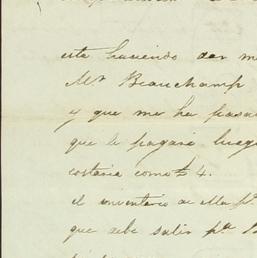 esta haciendo dar m
Mr Beauchamp
y que me ha pasa
que le pagaré lueg
costaria como $ 4.
el inventario de
que debe salir pa